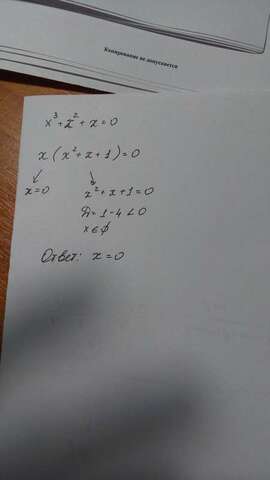 Копирование не допускается
x³+x²+x=0
x(x²+x+1)=0
x=0
x²+x+1=0
D=1-4<0
x∈∅
Ответ: x=0